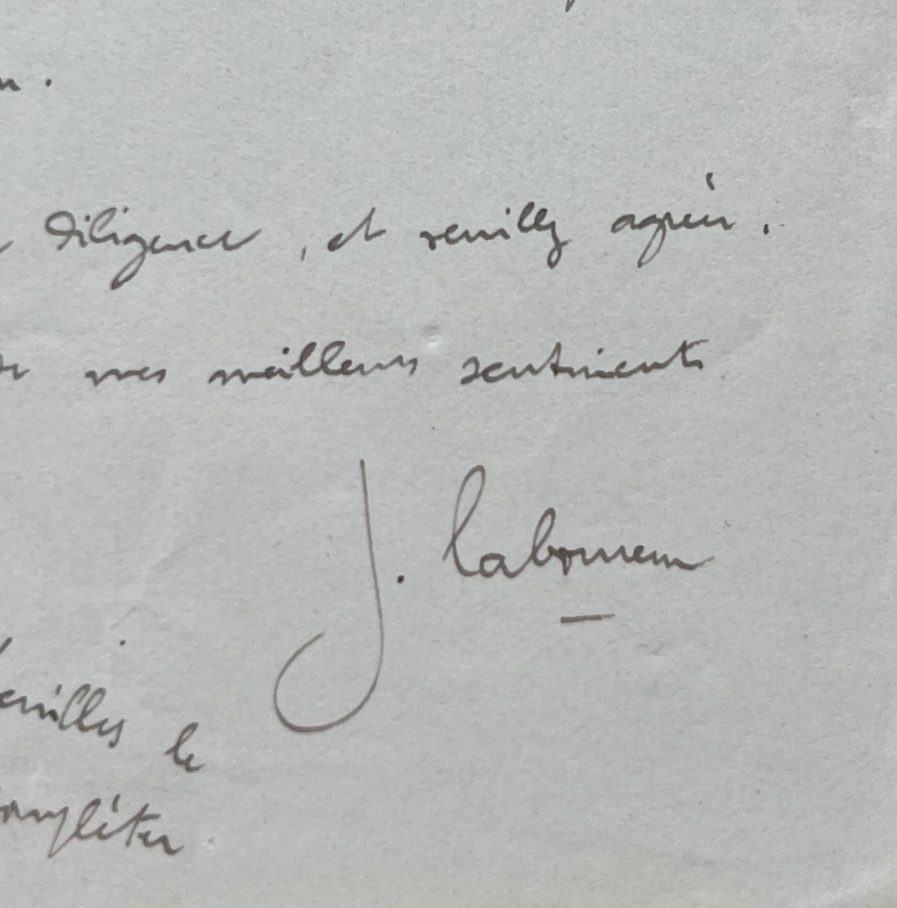 diligence, et veuillez agréer.
mes meilleurs sentiments
J.
veuillez le
compléter